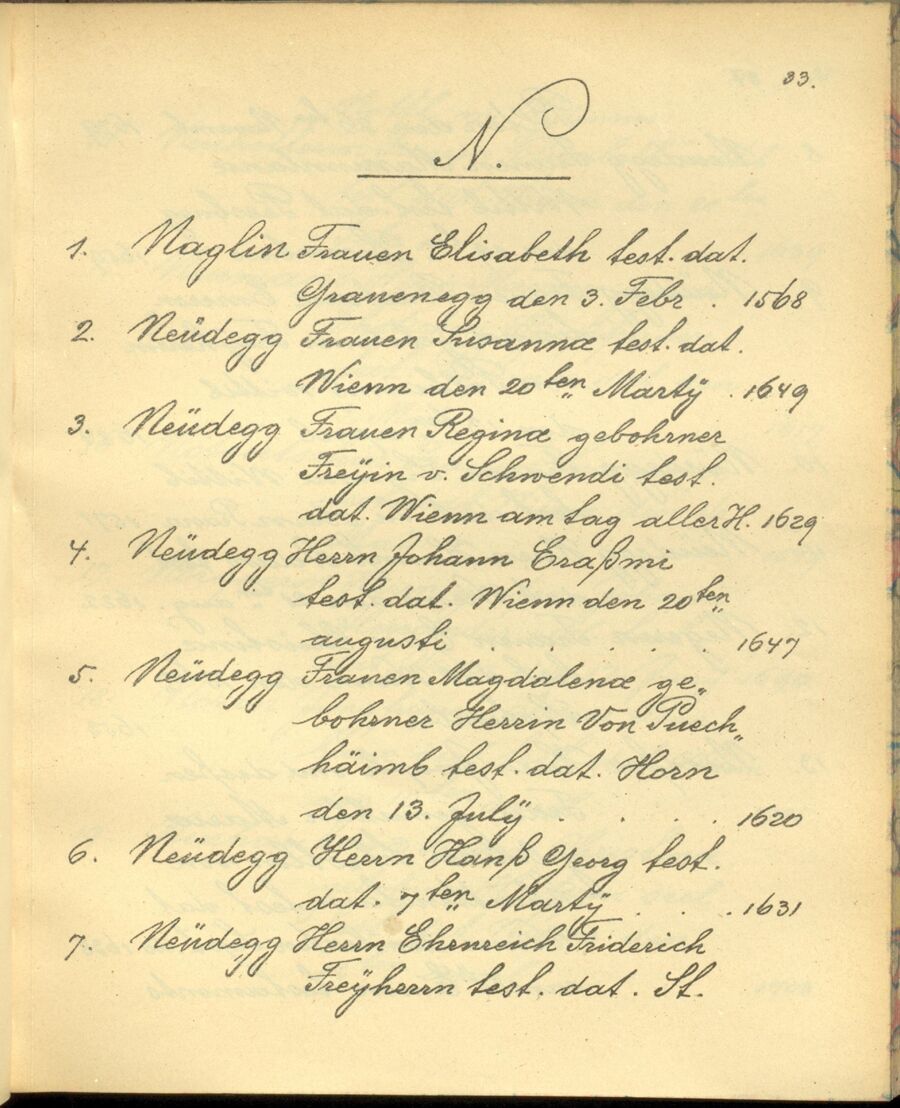 33.
N.
1. Naglin Frauen Elisabeth test. dat.
Grauenegg den 3. Febr . 1568
2. Neüdegg Frauen Susannæ test. dat.
Wienn den 20ten Martÿ . 1649
3. Neüdegg Frauen Reginæ gebohrner
Freÿin v. Schwendi test.
dat. Wienn am tag aller H. 1629
4. Neüdegg Herrn Johann Eraßmi
test. dat. Wienn den 20ten
augusti . . . . . 1647
5. Neüdegg Frauen Magdalenæ ge„
bohrner Herrin Von Puech„
häimb test. dat. Horn
den 13. Julÿ . . . 1620
6. Neüdegg Herrn Hanß Georg test.
dat. 7ten Martÿ . . . 1631
7. Neüdegg Herrn Ehrnreich Friderich
Freÿherrn test. dat. St.